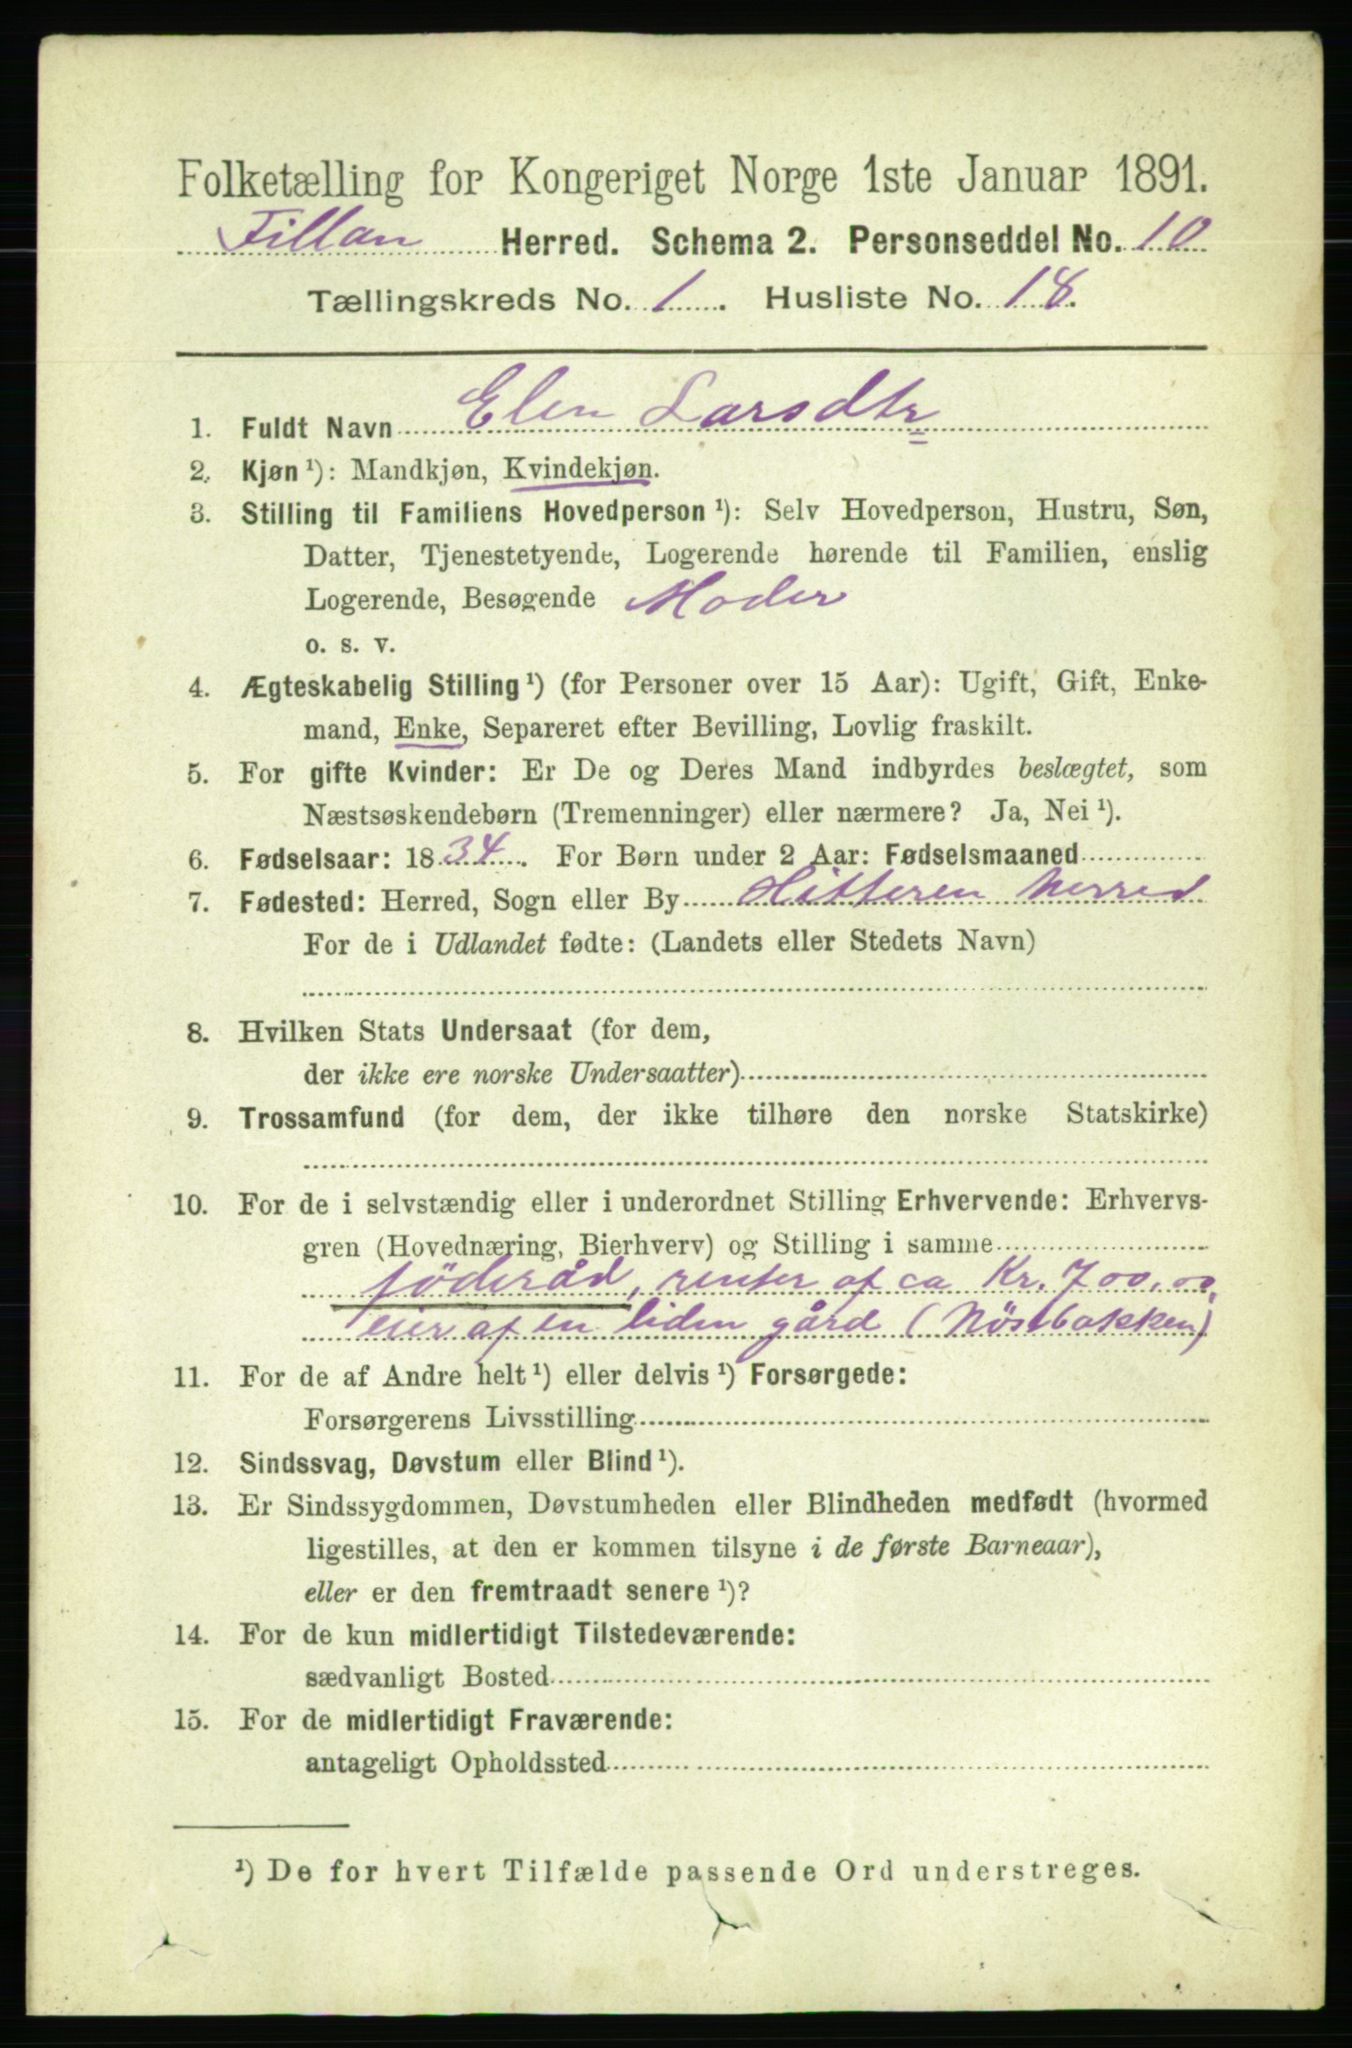 Folketælling for Kongeriget Norge 1ste Januar 1891.
Fillan Herred. Schema 2. Personseddel No. 10
Tællingskreds No. 1. Husliste No. 18.
1. Fuldt Navn Elen Larsdtr
2. Kjøn ¹): Mandkjøn, Kvindekjøn.
3. Stilling til Familiens Hovedperson ¹): Selv Hovedperson, Hustru, Søn,
Datter, Tjenestetyende, Logerende hørende til Familien, enslig
Logerende, Besøgende Moder
o. s. v.
4. Ægteskabelig Stilling ¹) (for Personer over 15 Aar): Ugift, Gift, Enke-
mand, Enke, Separeret efter Bevilling, Lovlig fraskilt.
5. For gifte Kvinder: Er De og Deres Mand indbyrdes beslægtet, som
Næstsøskendebørn (Tremenninger) eller nærmere? Ja, Nei ¹).
6. Fødselsaar: 1834. For Børn under 2 Aar: Fødselsmaaned
7. Fødested: Herred, Sogn eller By Hitteren herred
For de i Udlandet fødte: (Landets eller Stedets Navn)
8. Hvilken Stats Undersaat (for dem,
der ikke ere norske Undersaatter)
9. Trossamfund (for dem, der ikke tilhøre den norske Statskirke)
10. For de i selvstændig eller i underordnet Stilling Erhvervende: Erhvervs-
gren (Hovednæring, Bierhverv) og Stilling i samme
föderåd, renter af ca Kr. 700,00,
eier af en liden gård (Nöstbakken)
11. For de af Andre helt ¹) eller delvis ¹) Forsørgede:
Forsørgerens Livsstilling
12. Sindssvag, Døvstum eller Blind ¹).
13. Er Sindssygdommen, Døvstumheden eller Blindheden medfødt (hvormed
ligestilles, at den er kommen tilsyne i de første Barneaar),
eller er den fremtraadt senere ¹)?
14. For de kun midlertidigt Tilstedeværende:
sædvanligt Bosted
15. For de midlertidigt Fraværende:
antageligt Opholdssted
¹) De for hvert Tilfælde passende Ord understreges.